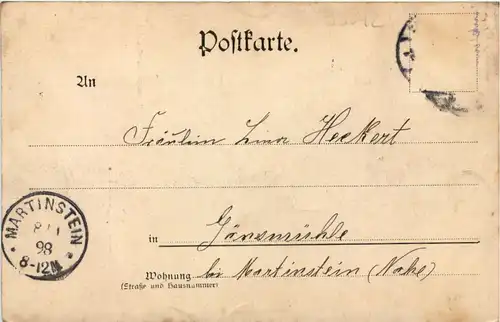 Postkarte.
An
Fräulein Lina Heckert
MARTINSTEIN
98
8-12N
in Gänsmühle
Wohnung bei Martinstein (Nahe)
(Straße und Hausnummer)